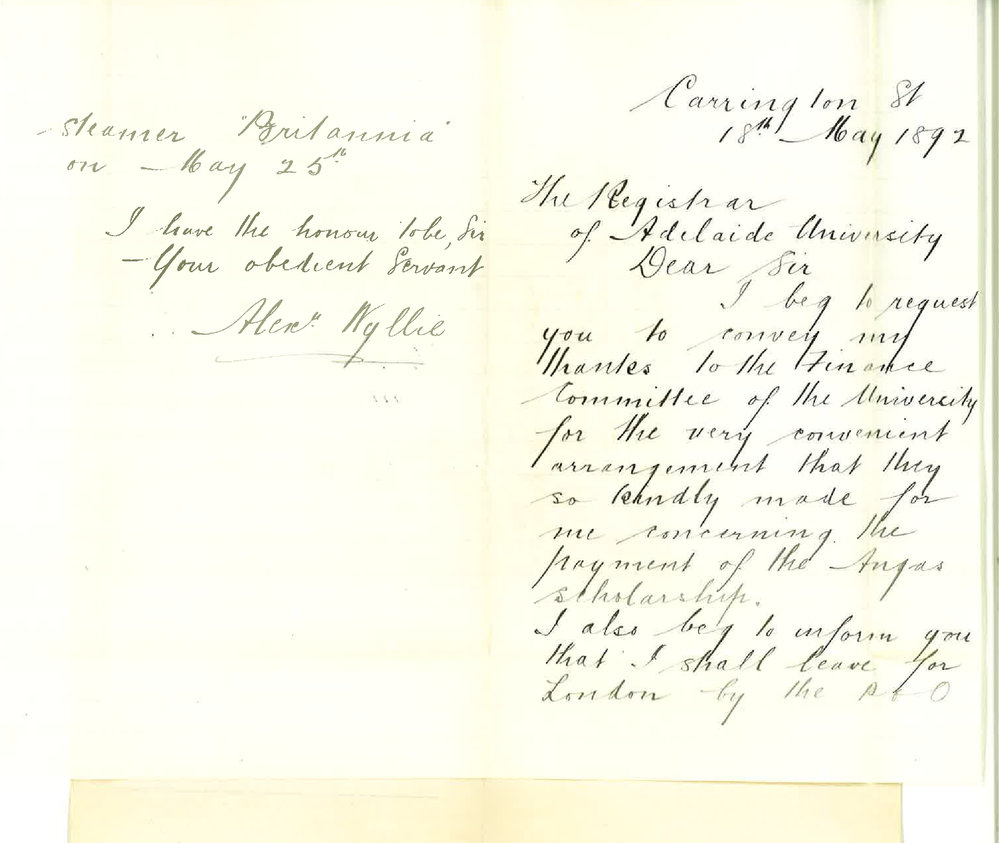 Carrington St
18th May 1892
The Registrar
of Adelaide University
Dear Sir
I beg to request
you to convey my
thanks to the Finance
Committee of the University
for the very convenient
arrangement that they
so kindly made for
me concerning the
payment of the Angas
scholarship.
I also beg to inform you
that I shall leave for
London by the P & O
steamer "Britannia"
on May 25th
I have the honour to be, Sir
Your obedient Servant
Alexr Wyllie